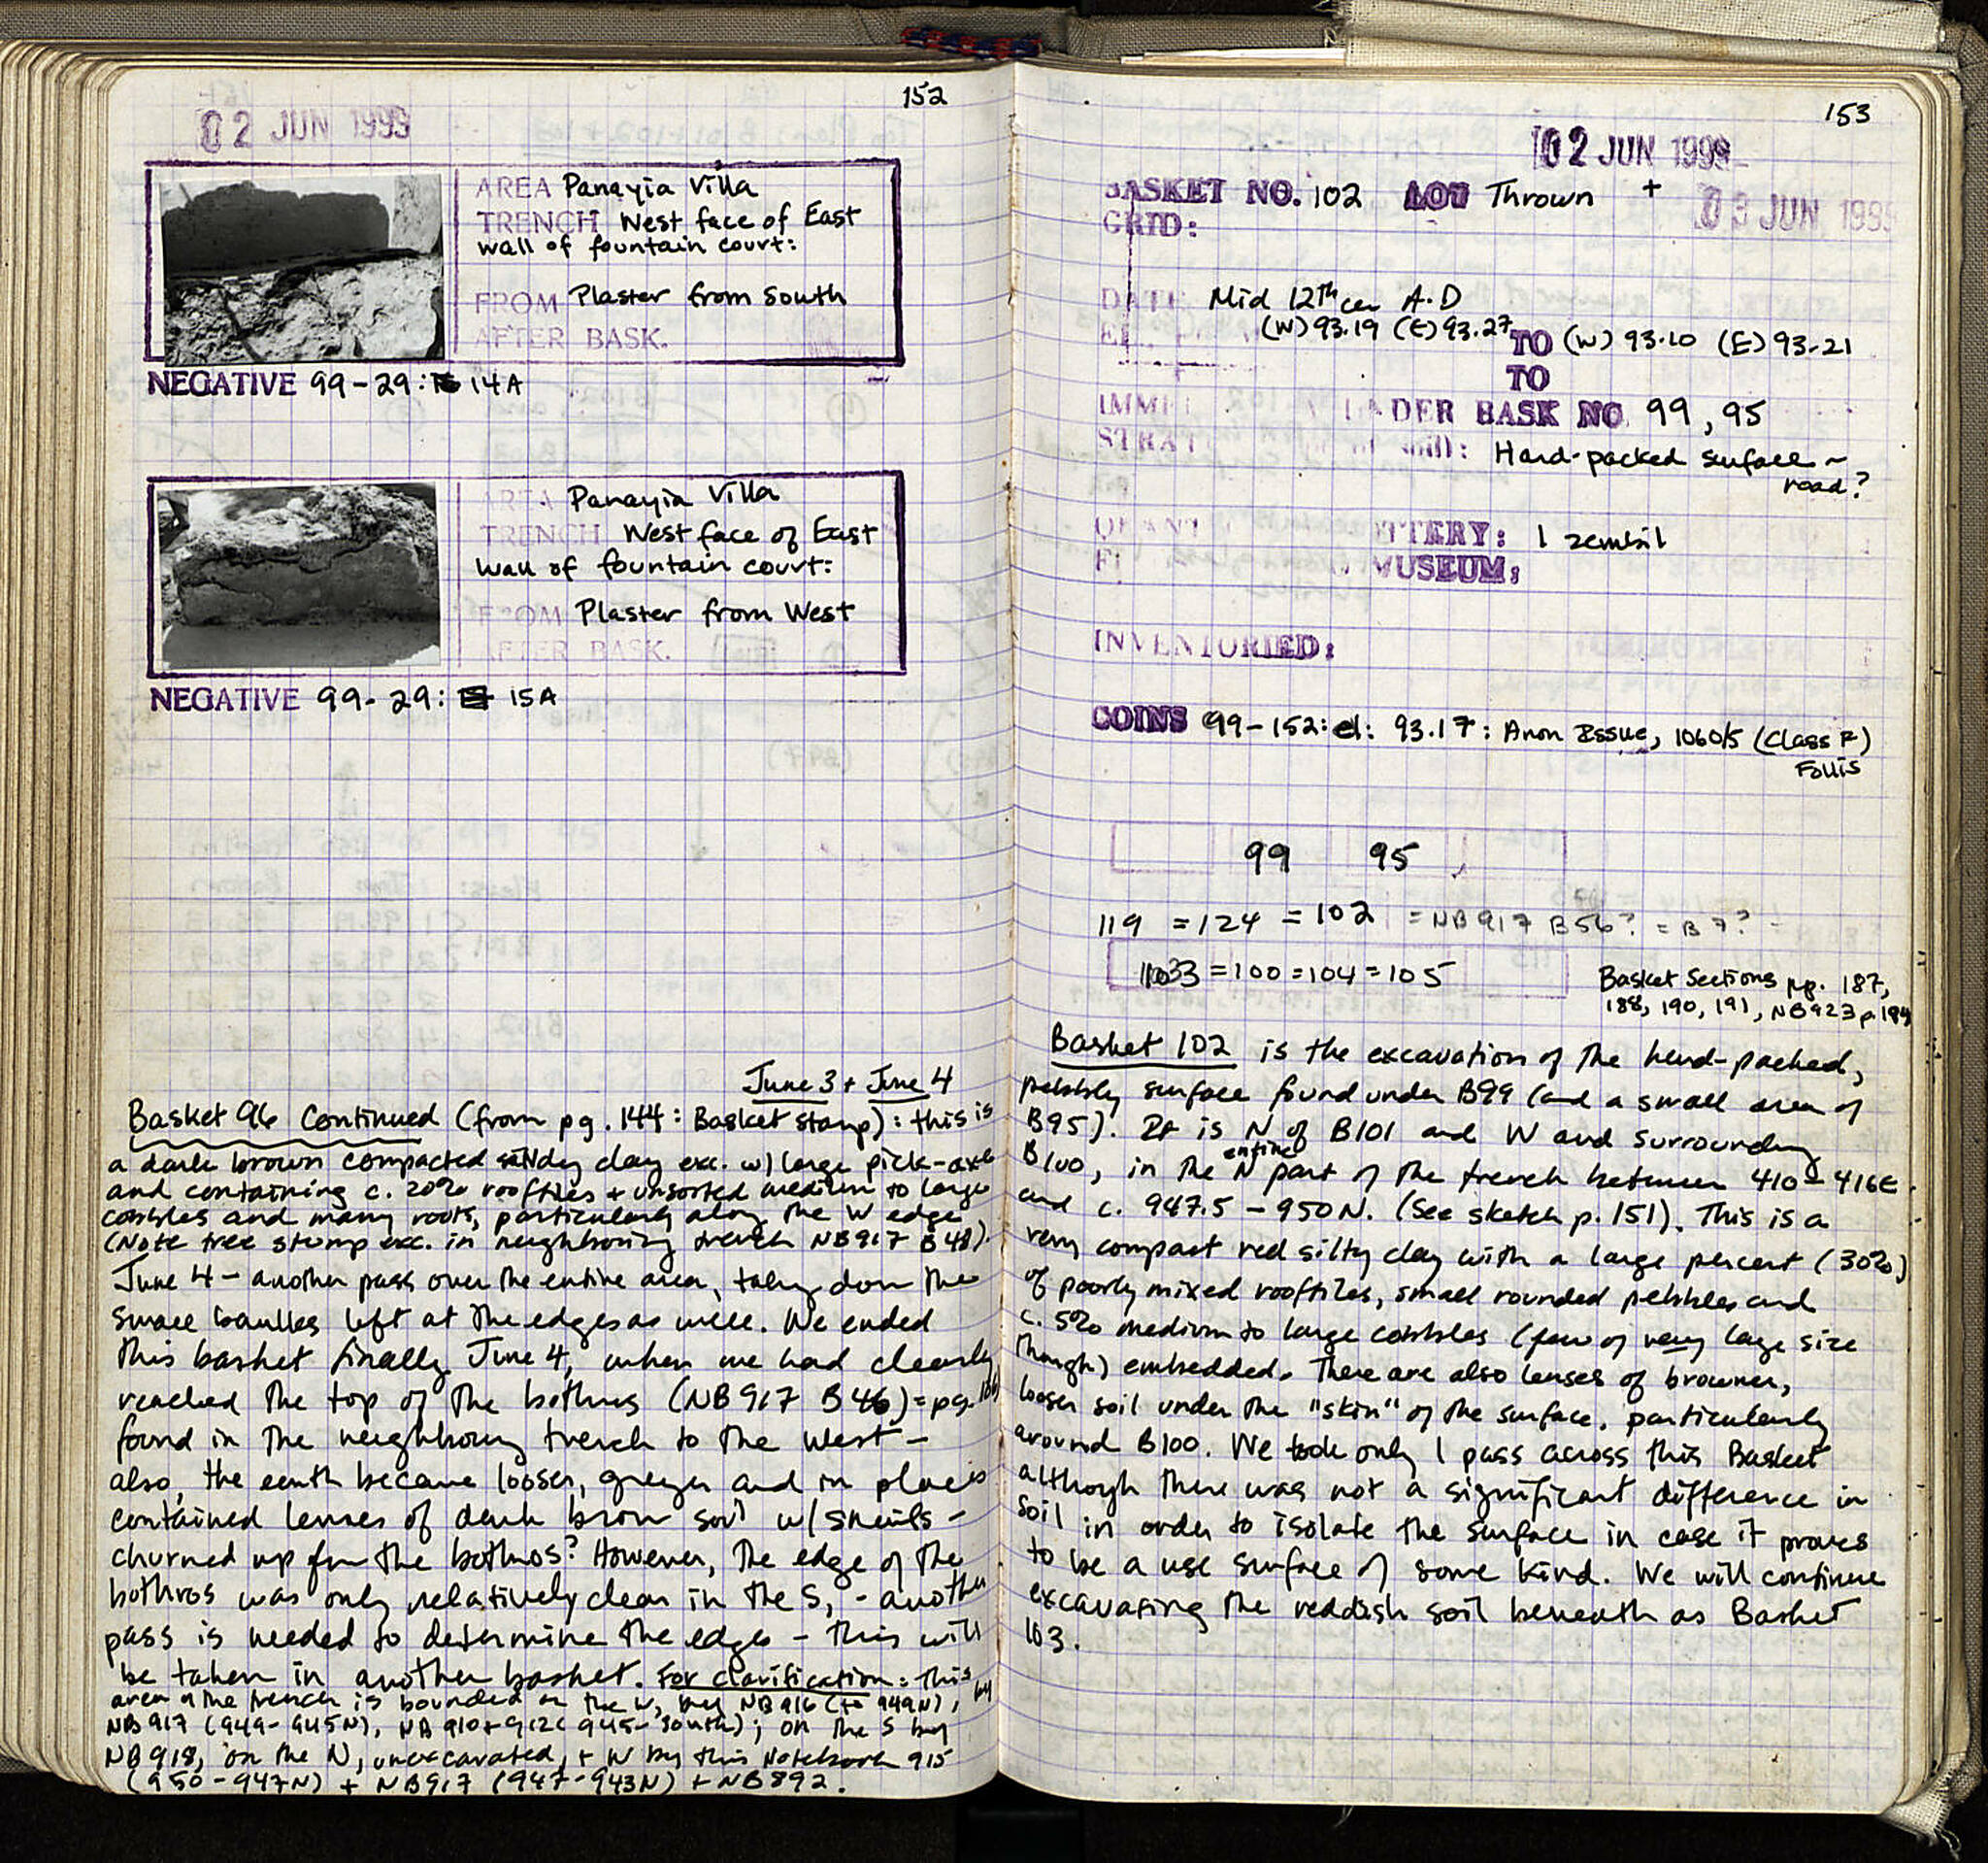 152
02 JUN 1999
AREA Panayia Villa
TRENCH West face of East
wall of fountain court:
FROM Plaster from South
AFTER BASK.
NEGATIVE 99-29: 14A
AREA Panayia Villa
TRENCH West face of East
wall of fountain court:
FROM Plaster from West
AFTER BASK.
NEGATIVE 99-29: 15A
June 3 + June 4
Basket 96 Continued (from pg. 144: Basket stamp): this is
a dark brown compacted sandy clay exc. w/ large pick-axe
and containing c. 20% rooftiles + unsorted medium to large
cobbles and many roots, particularly along the W edge
(Note tree stump exc. in neighboring trench NB917 B48).
June 4 - another pass over the entire area, taking down the
small baulks left at the edges as well. We ended
this basket finally June 4, when we had clearly
reached the top of the bothros (NB 917 B46) = pg.
found in the neighboring trench to the west -
also, the earth became looser, greyer and in places
contained lenses of dark brown soil w/ snails -
churned up from the bothros? However, the edge of the
bothros was only relatively clear in the S, - another
pass is needed to determine the edges - this will
be taken in another basket. For clarification: This
area of the trench is bounded on the W, by NB916 (to 949N), by
NB917 (949-945N), NB 910+912 (945-South); on the S by
NB918, on the N, unexcavated, + W by this Notebook 915
(950-947N) + NB917 (947-943N) + NB892.
153
02 JUN 1999
BASKET NO. 102 LOT Thrown + 03 JUN 1999
GRID:
DATE Mid 12th cen A.D
EL. (W) 93.19 (E) 93.27 TO (W) 93.10 (E) 93.21
TO
UNDER BASK NO 99, 95
STRAT soil): Hard-packed surface ~
road?
POTTERY: 1 zembil
MUSEUM:
INVENTORIED:
COINS 99-152: el: 93.17: Anon Issue, 1060/5 (Class F)
Follis
99 95
119 = 124 = 102 = NB 917 B56? = B7?
= 100 = 104 = 105
Basket Sections pg. 187,
188, 190, 191, NB923 p
Basket 102 is the excavation of the hard-packed,
pebbly surface found under B99 (and a small area of
B95). It is N of B101 and W and surrounding
B100, in the entire N part of the trench between 410 - 416E
and c. 947.5 - 950N. (See sketch p. 151). This is a
very compact red silty clay with a large percent (30%)
of poorly mixed rooftiles, small rounded pebbles and
c. 5% medium to large cobbles (few of very large size
though) embedded. There are also lenses of browner,
looser soil under the "skin" of the surface, particularly
around B100. We took only 1 pass across this Basket
although there was not a significant difference in
soil in order to isolate the surface in case it proves
to be a use surface of some kind. We will continue
excavating the reddish soil beneath as Basket
103.